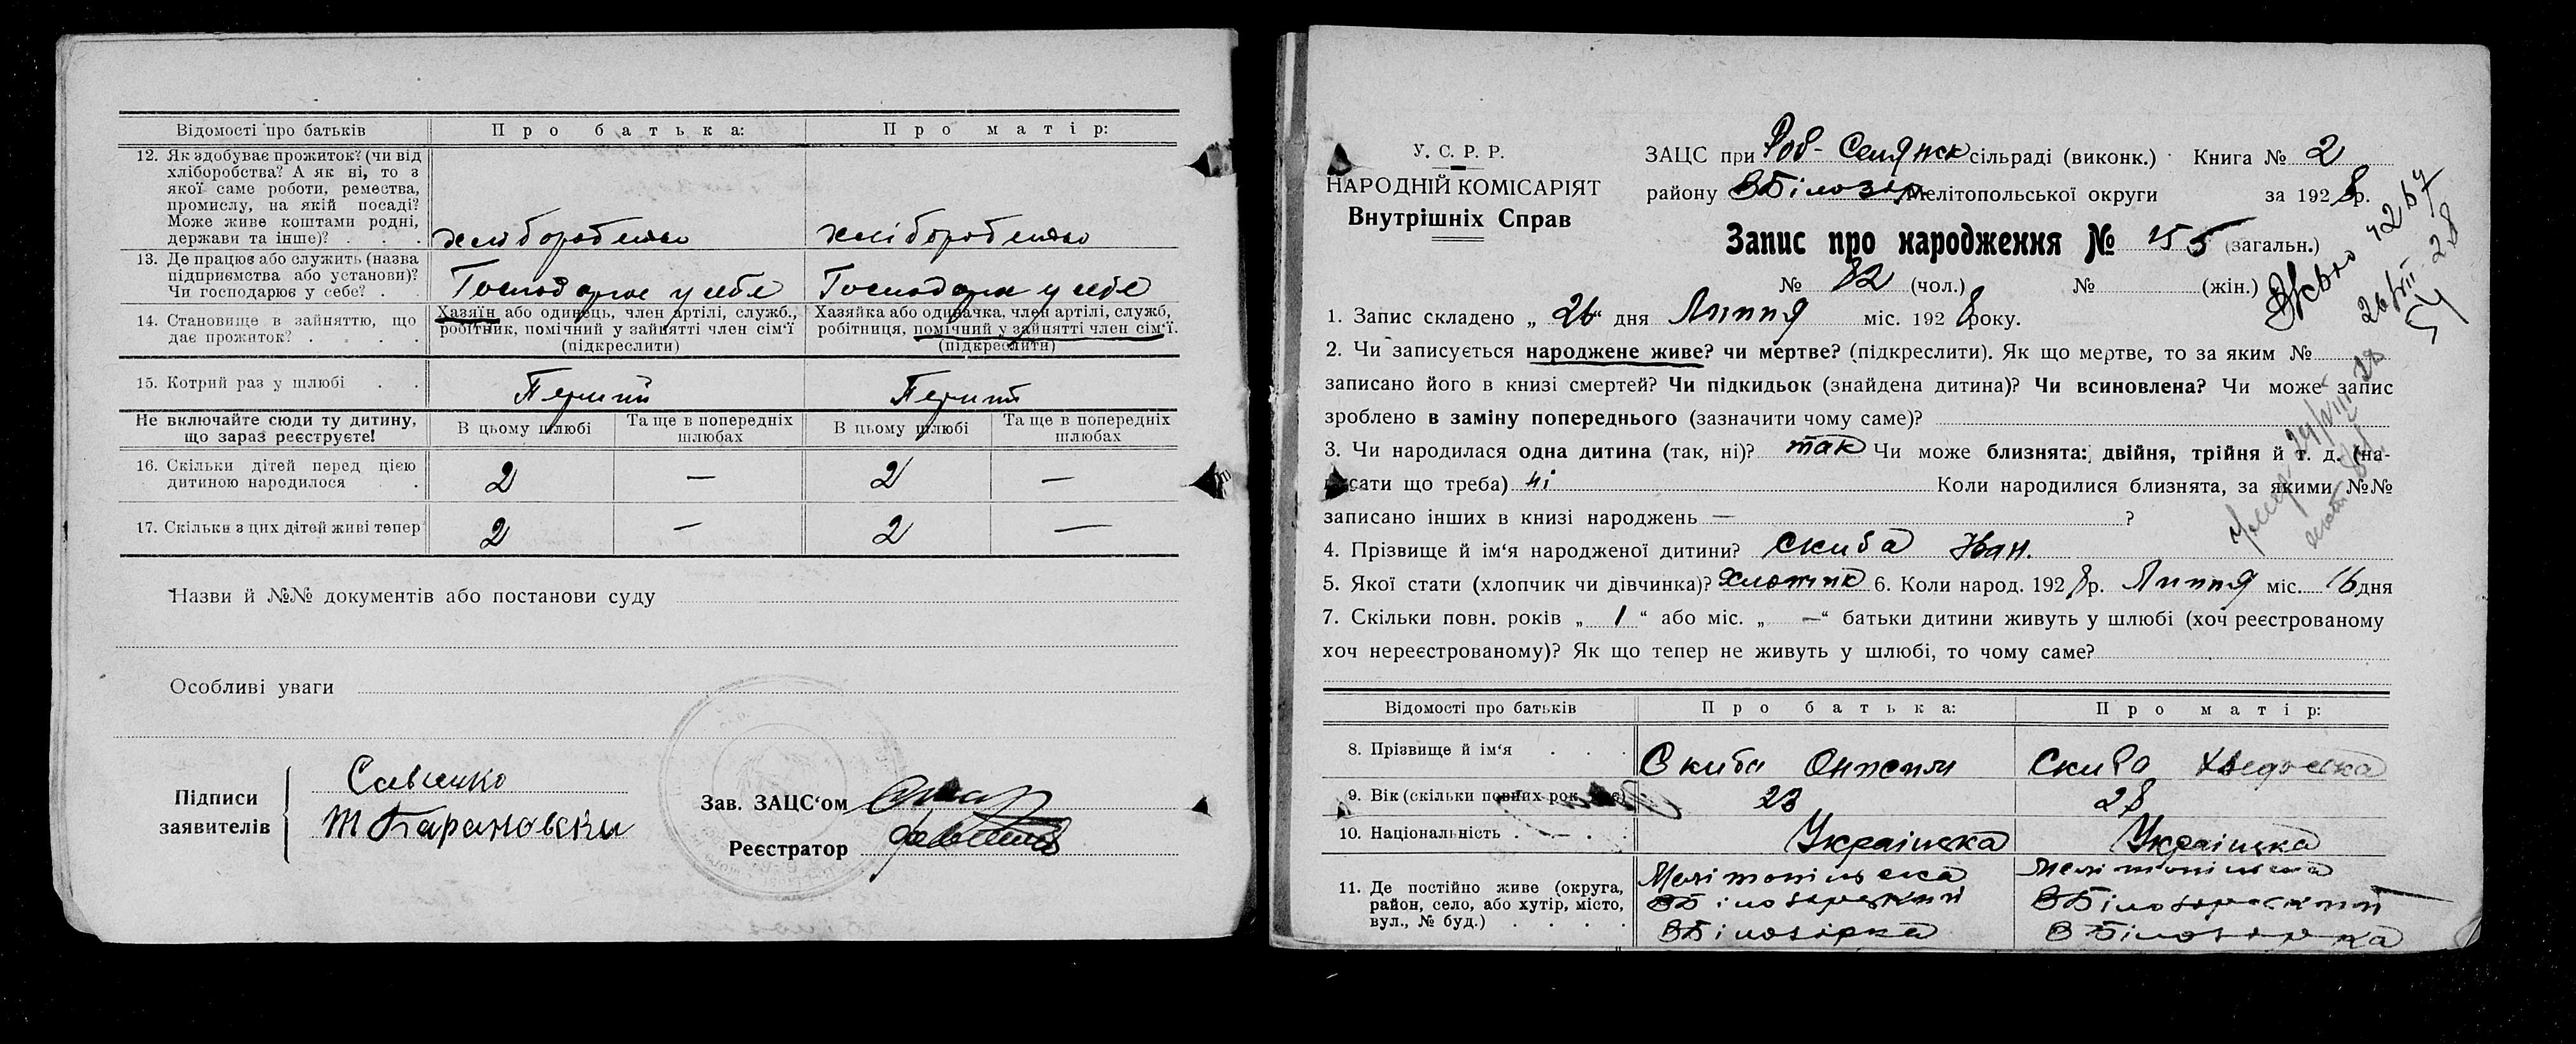 Відомості про батьків
Про батька:
Про матір:
12. Як здобуває прожиток? (чи від
хліборобства? А як ні, то з
якої саме роботи, ремества,
промислу, на якій посаді?
Може живе коштами родні,
держави та інше)? . . .
хліборобством
хліборобством
13. Де працює або служить (назва
підприємства або установи)?
Чи господарює у себе? . .
Господарює у себе
Господарює у себе
14. Становище в зайняттю, що
дає прожиток? . . . .
Хазяїн або одинець, член артілі, служб.,
робітник, помічний у зайнятті член сім'ї
(підкреслити)
Хазяйка або одиначка, член артілі, служб,
робітниця, помічний у зайнятті член сім'ї.
(підкреслити)
15. Котрий раз у шлюбі . .
Перший
Перший
Не включайте сюди ту дитину,
що зараз реєструєте!
В цьому шлюбі
Та ще в попередніх
шлюбах
В цьому шлюбі
Та ще в попередніх
шлюбах
16. Скільки дітей перед цією
дитиною народилося . .
2 — 2 —
17. Скільки з цих дітей живі тепер
2 — 2 —
Назви й №№ документів або постанови суду
Особливі уваги
Підписи
заявителів
Савченко
Т Барановски
Зав. ЗАЦС'ом
Реєстратор
У. С. Р. Р.
НАРОДНІЙ КОМІСАРІЯТ
Внутрішніх Справ
ЗАЦС при Роб-Селянск сільраді (виконк.) Книга № 2
району ВБілозер Мелітопольської округи за 1928 р.
Запис про народження № 155 (загальн.)
№ 82 (чол.) № (жін.)
1. Запис складено „ 26 “ дня Липня міс. 1928 року.
2. Чи записується народжене живе? чи мертве? (підкреслити). Як що мертве, то за яким №
записано його в книзі смертей? Чи підкидьок (знайдена дитина)? Чи всиновлена? Чи може запис
зроблено в заміну попереднього (зазначити чому саме)?
3. Чи народилася одна дитина (так, ні)? так Чи може близнята: двійня, трійня й т. д. (на-
писати що треба) ні Коли народилися близнята, за якими №№
записано інших в книзі народжень — ?
4. Прізвище й ім'я народженої дитини? Скиба Іван.
5. Якої стати (хлопчик чи дівчинка)? хлопчик 6. Коли народ. 1928 р. Липня міс. 16 дня
7. Скільки повн. років „ 1 “ або міс. „ — “ батьки дитини живуть у шлюбі (хоч реєстрованому
хоч нереєстрованому)? Як що тепер не живуть у шлюбі, то чому саме?
Відомості про батьків
Про батька:
Про матір:
8. Прізвище й ім'я . . .
Скиба Онисим
Скиба Хведоська
9. Вік (скільки повних рок
23
28
10. Національність . . . .
Українська
Українська
11. Де постійно живе (округа,
район, село, або хутір, місто,
вул., № буд.) . . . .
Мелітопільска
ВБілозерский
ВБілозірка
Мелітопільска
ВБілозерский
ВБілозірка
26/VII 28